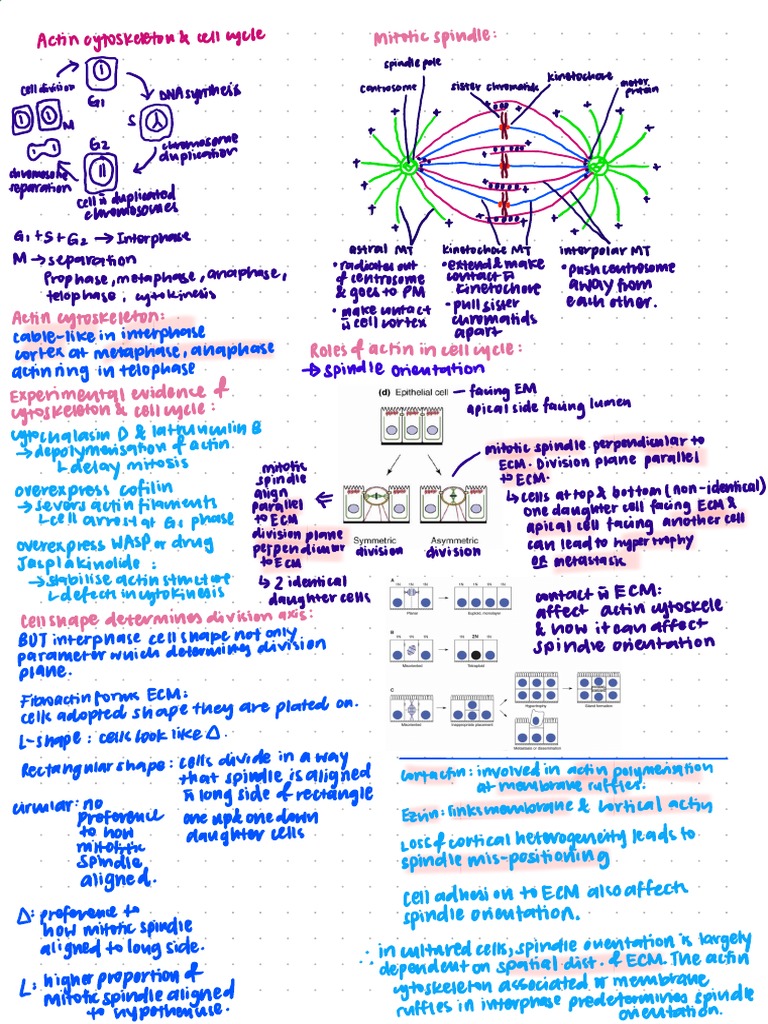 Actin cytoskeleton & cell cycle
cell division
G1
DNA synthesis
S
M
G2
chromosome
duplication
chromosome
separation
cell w̄ duplicated
chromosomes
G1 + S + G2 → Interphase
M → separation
Prophase, metaphase, anaphase,
telophase, cytokinesis
Actin cytoskeleton:
cable-like in interphase
cortex at metaphase, anaphase
actin ring in telophase
Experimental evidence of
cytoskeleton & cell cycle:
cytochalasin D & latrunculin B
→ depolymerisation of actin
↳ delay mitosis
overexpress cofilin
→ severs actin filaments
↳ cell arrest at G1 phase
overexpress WASP or drug
Jasplakinolide:
→ stabilise actin structure
↳ defect in cytokinesis
Cell shape determines division axis:
BUT interphase cell shape not only
parameter which determines division
plane.
Fibroactin forms ECM:
cells adopted shape they are plated on.
L-shape: cells look like Δ.
Rectangular shape: cells divide in a way
that spindle is aligned
w̄ long side of rectangle
one up & one down
daughter cells
circular: no
preference
to how
mitotic
spindle
aligned.
Δ: preference to
how mitotic spindle
aligned to long side.
L: higher proportion of
mitotic spindle aligned
to hypothenuse.
Mitotic spindle:
spindle pole
centrosome
sister chromatids
kinetochore
motor
protein
astral MT
• radiates out
of centrosome
& goes to PM
• make contact
w̄ cell cortex
kinetochore MT
• extend & make
contact w̄
kinetochore
• pull sister
chromatids
apart
interpolar MT
• push centrosome
away from
each other.
Roles of actin in cell cycle:
→ spindle orientation
(d) Epithelial cell
— facing EM
apical side facing lumen
mitotic
spindle
align
parallel
to ECM
division plane
perpendicular
to ECM
↳ 2 identical
daughter cells
Symmetric
division
Asymmetric
division
mitotic spindle perpendicular to
ECM. Division plane parallel
to ECM.
↳ cells at top & bottom (non-identical)
one daughter cell facing ECM &
apical cell facing another cell
can lead to hypertrophy
or metastasis
contact w̄ ECM:
affect actin cytoskele
& how it can affect
spindle orientation
A
Planar
Euploid, monolayer
B
Misoriented
Tetraploid
C
Misoriented
Inappropriate placement
Hypertrophy
Gland formation
Metastasis or dissemination
Cortactin: involved in actin polymerisation
at membrane ruffles.
Ezrin: links membrane & cortical actin
Loss of cortical heterogeneity leads to
spindle mis-positioning
cell adhesion to ECM also affects
spindle orientation.
∴ in cultured cells, spindle orientation is largely
dependent on spatial dist. of ECM. The actin
cytoskeleton associated w̄ membrane
ruffles in interphase predetermines spindle
orientation.